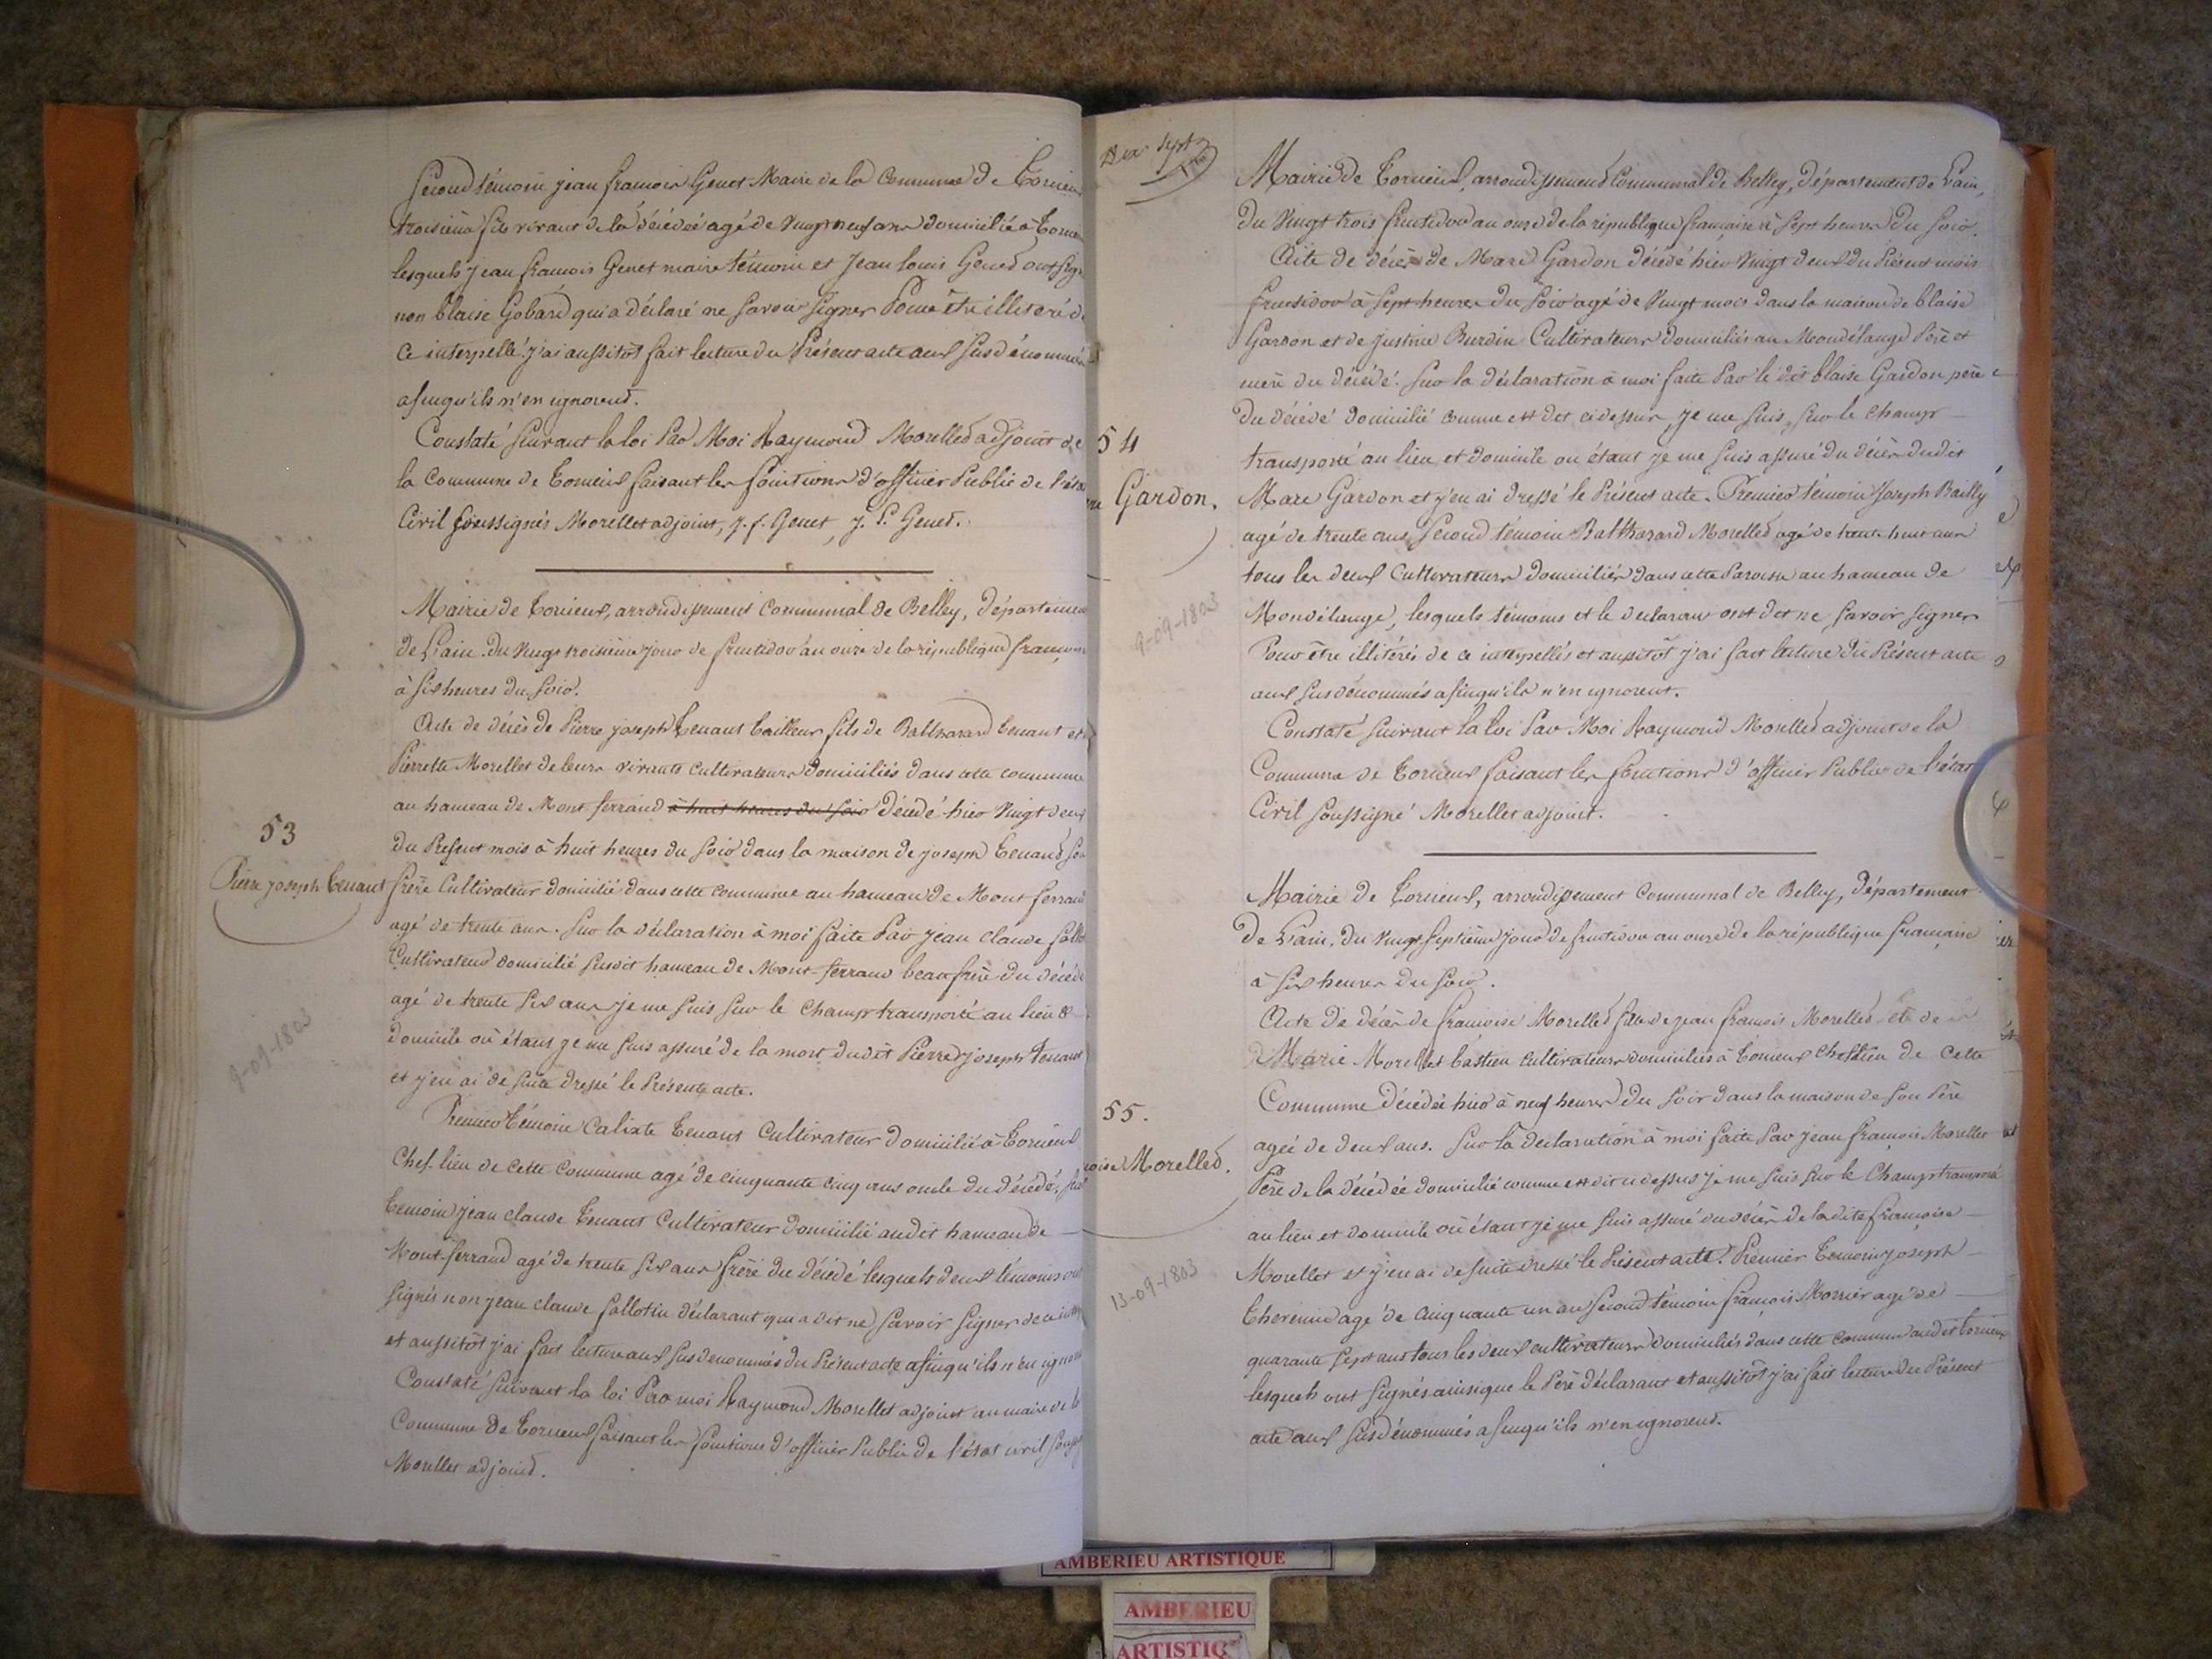 Second témoin jean francois Genet Maire de la Commune de Torcieu
troisième fils vivant de la décédée agé de vingt neuf ans domicilié à
lesquels jean francois Genet maire témoin et Jean louis Genet ont
non blaise Gobard qui a déclaré ne savoir signer Pour être illiteré de
ce interpellé. j'ai aussitôt fait lecture du Présent acte aux susdénommés
afinqu'ils n'en ignorent.
Constaté suivant la loi Par Moi Raymond Morellet adjoint de
la Commune de Torcieux faisant les fonctions d'officier Public de l'état
Civil soussignés Morellet adjoint, J. f. Genet, J. L. Genet.
Mairie de Torcieux, arrondissement Communal de Belley, Département
de L'ain. du vingt troisième jour de fructidor an onze de la république française
à six heures du soir.
Acte de décès de Pierre joseph Tenant tailleur fils de Balthazard Tenant et
Pierrette Morellet de leurs vivants cultivateurs domiciliés dans cette commune
au hameau de Mont ferrand à huit heures du soir décédé hier vingt deux
du Present mois à huit heures du soir dans la maison de joseph Tenand son
53
Pierre joseph Tenant
frère Cultivateur domicilié dans cette commune au hameau de Mont ferrand
agé de trente ans. Sur la déclaration à moi faite Par jean claude
Cultivateur domicilié susdit hameau de Mont-ferrand beau frère du décédé
agé de trente six ans je me suis sur le champ transporté au lieu &
domicile où étant je me suis assuré de la mort dudit Pierre joseph Tenant
et j'en ai de suite dressé le Présent acte.
9-09-1803
Premier témoin Calixte Tenant Cultivateur domicilié à Torcieux
Chef-lieu de cette commune agé de cinquante cinq ans oncle du décédé,
témoin jean claude Tenant Cultivateur domicilié audit hameau de
Mont-ferrand agé de trente six ans frère du décédé lesquels deux témoins ont
signés non jean claude follotin déclarant qui a dit ne savoir signer de ce
et aussitôt j'ai fait lecture aux susdenommés du Présent acte afinqu'ils n'en
Constaté suivant la loi Par moi Raymond Morellet adjoint au maire de la
Commune de Torcieux faisant les fonctions d'officier Public de l'état civil
Morellet adjoint.
dix sept
Mairie de Torcieux, arrondissement Communal de Belley, département de L'ain,
du Vingt trois fructidor an onze de la république française à sept heures du soir.
Acte de décès de Marc Gardon décédé hier vingt deux du Présent mois
fructidor à sept heures du soir agé de vingt mois dans la maison de blaise
Gardon et de justine Burdin Cultivateurs domiciliés au Mondélange Père et
mère du décédé. Sur la déclaration à moi faite Par le dit blaise Gardon père
du décédé domicilié comme est dit cidessus, je me suis sur le champ
transporté au lieu et domicile ou étant je me suis assuré du décès dudit
54
Gardon.
Marc Gardon et j'en ai dressé le Présent acte. Premier témoin Joseph Bailly
agé de trente ans, Second témoin Balthazard Morellet agé de trente huit ans
tous les deux Cultivateurs domiciliés dans cette Paroisse au hameau de
Mondélange, lesquels témoins et le declarant ont dit ne savoir signer
9-09-1803
Pour être illitérés de ce interpellés et aussitôt j'ai fait lecture du Présent acte
aux susdénommés afinqu'ils n'en ignorent.
Constaté suivant la loi Par Moi Raymond Morellet adjoint de la
Commune de Torcieux faisant les fonctions d'officier Public de l'état
Civil soussigné Morellet adjoint.
Mairie de Torcieux, arrondissement Communal de Belley, Département
De L'ain, du vingt septième jour de fructidor an onze de la république française
à six heures du soir.
Acte de décès de françoise Morellet fille de jean françois Morellet et de
Marie Morellet bastien cultivateurs domiciliés à Torcieux chef lieu de cette
Commune décédée hier à neuf heures du soir dans la maison de son Père
55.
Morellet.
agée de deux ans. Sur la declaration à moi faite Par jean françois Morellet
Père de la décédée domicilié comme est dit ci dessus je me suis sur le Champ transporté
au lieu et domicile où étant je me suis assuré du décès de la dite françoise
Morellet et j'en ai de suite dressé le Présent acte. Premier Temoin joseph
13-09-1803
agé de cinquante un an second témoin françois Mornier agé de
quarante sept ans tous les deux cultivateurs domiciliés dans cette commune audit Torcieux
lesquels ont signés ainsi que le Père déclarant et aussitôt j'ai fait lecture du Présent
acte aux susdénommés afinqu'ils n'en ignorent.
AMBERIEU ARTISTIQUE
AMBERIEU
ARTISTIQ